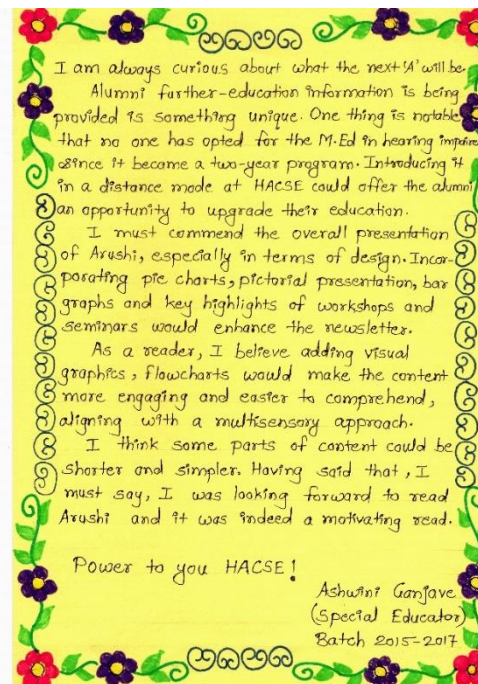 I am always curious about what the next 'A' will be.
Alumni further-education information is being
provided is something unique. One thing is notable
that no one has opted for the M.Ed in hearing impaire
since it became a two-year program. Introducing it
in a distance mode at HACSE could offer the alumni
an opportunity to upgrade their education.
I must commend the overall presentation
of Arushi, especially in terms of design. Incor-
porating pie charts, pictorial presentation, bar
graphs and key highlights of workshops and
seminars would enhance the newsletter.
As a reader, I believe adding visual
graphics, flowcharts would make the content
more engaging and easier to comprehend,
aligning with a multisensory approach.
I think some parts of content could be
shorter and simpler. Having said that, I
must say, I was looking forward to read
Arushi and it was indeed a motivating read.
Power to you HACSE!
Ashwini Ganjave
(Special Educator)
Batch 2015-2017